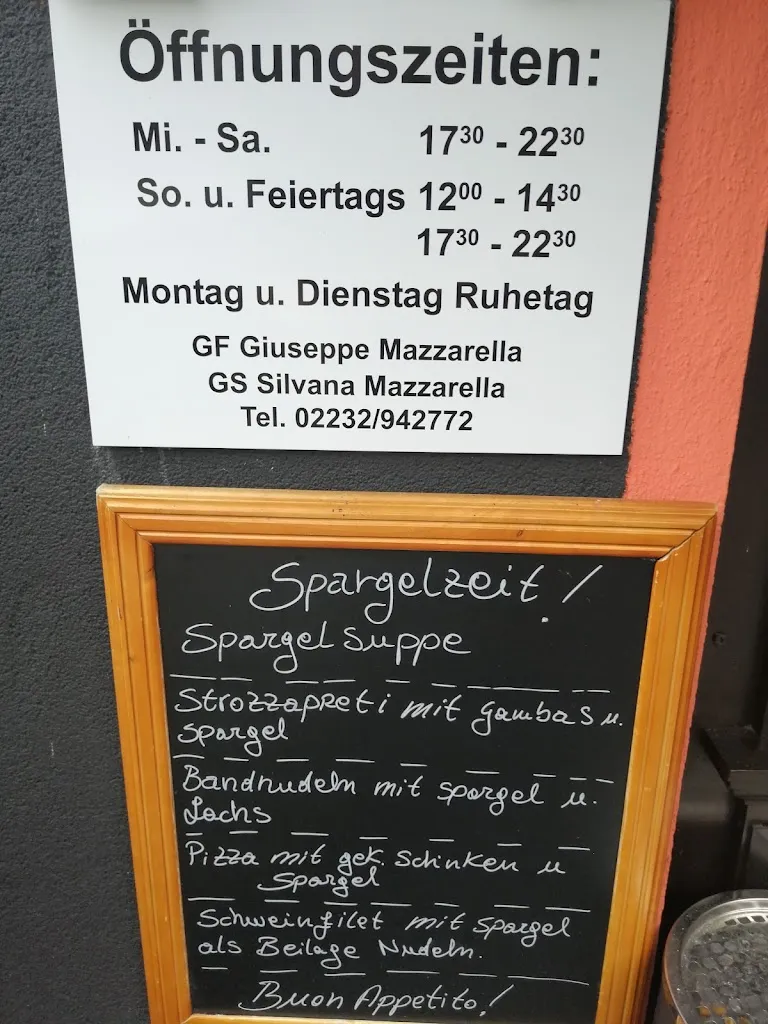 Öffnungszeiten:
Mi. - Sa. 17³⁰ - 22³⁰
So. u. Feiertags 12⁰⁰ - 14³⁰
17³⁰ - 22³⁰
Montag u. Dienstag Ruhetag
GF Giuseppe Mazzarella
GS Silvana Mazzarella
Tel. 02232/942772
Spargelzeit!
Spargel Suppe
Strozzapreti mit Gambas u.
Spargel
Bandnudeln mit spargel u.
Lachs
Pizza mit gek. Schinken u
Spargel
Schweinfilet mit Spargel
als Beilage Nudeln.
Buon Appetito!